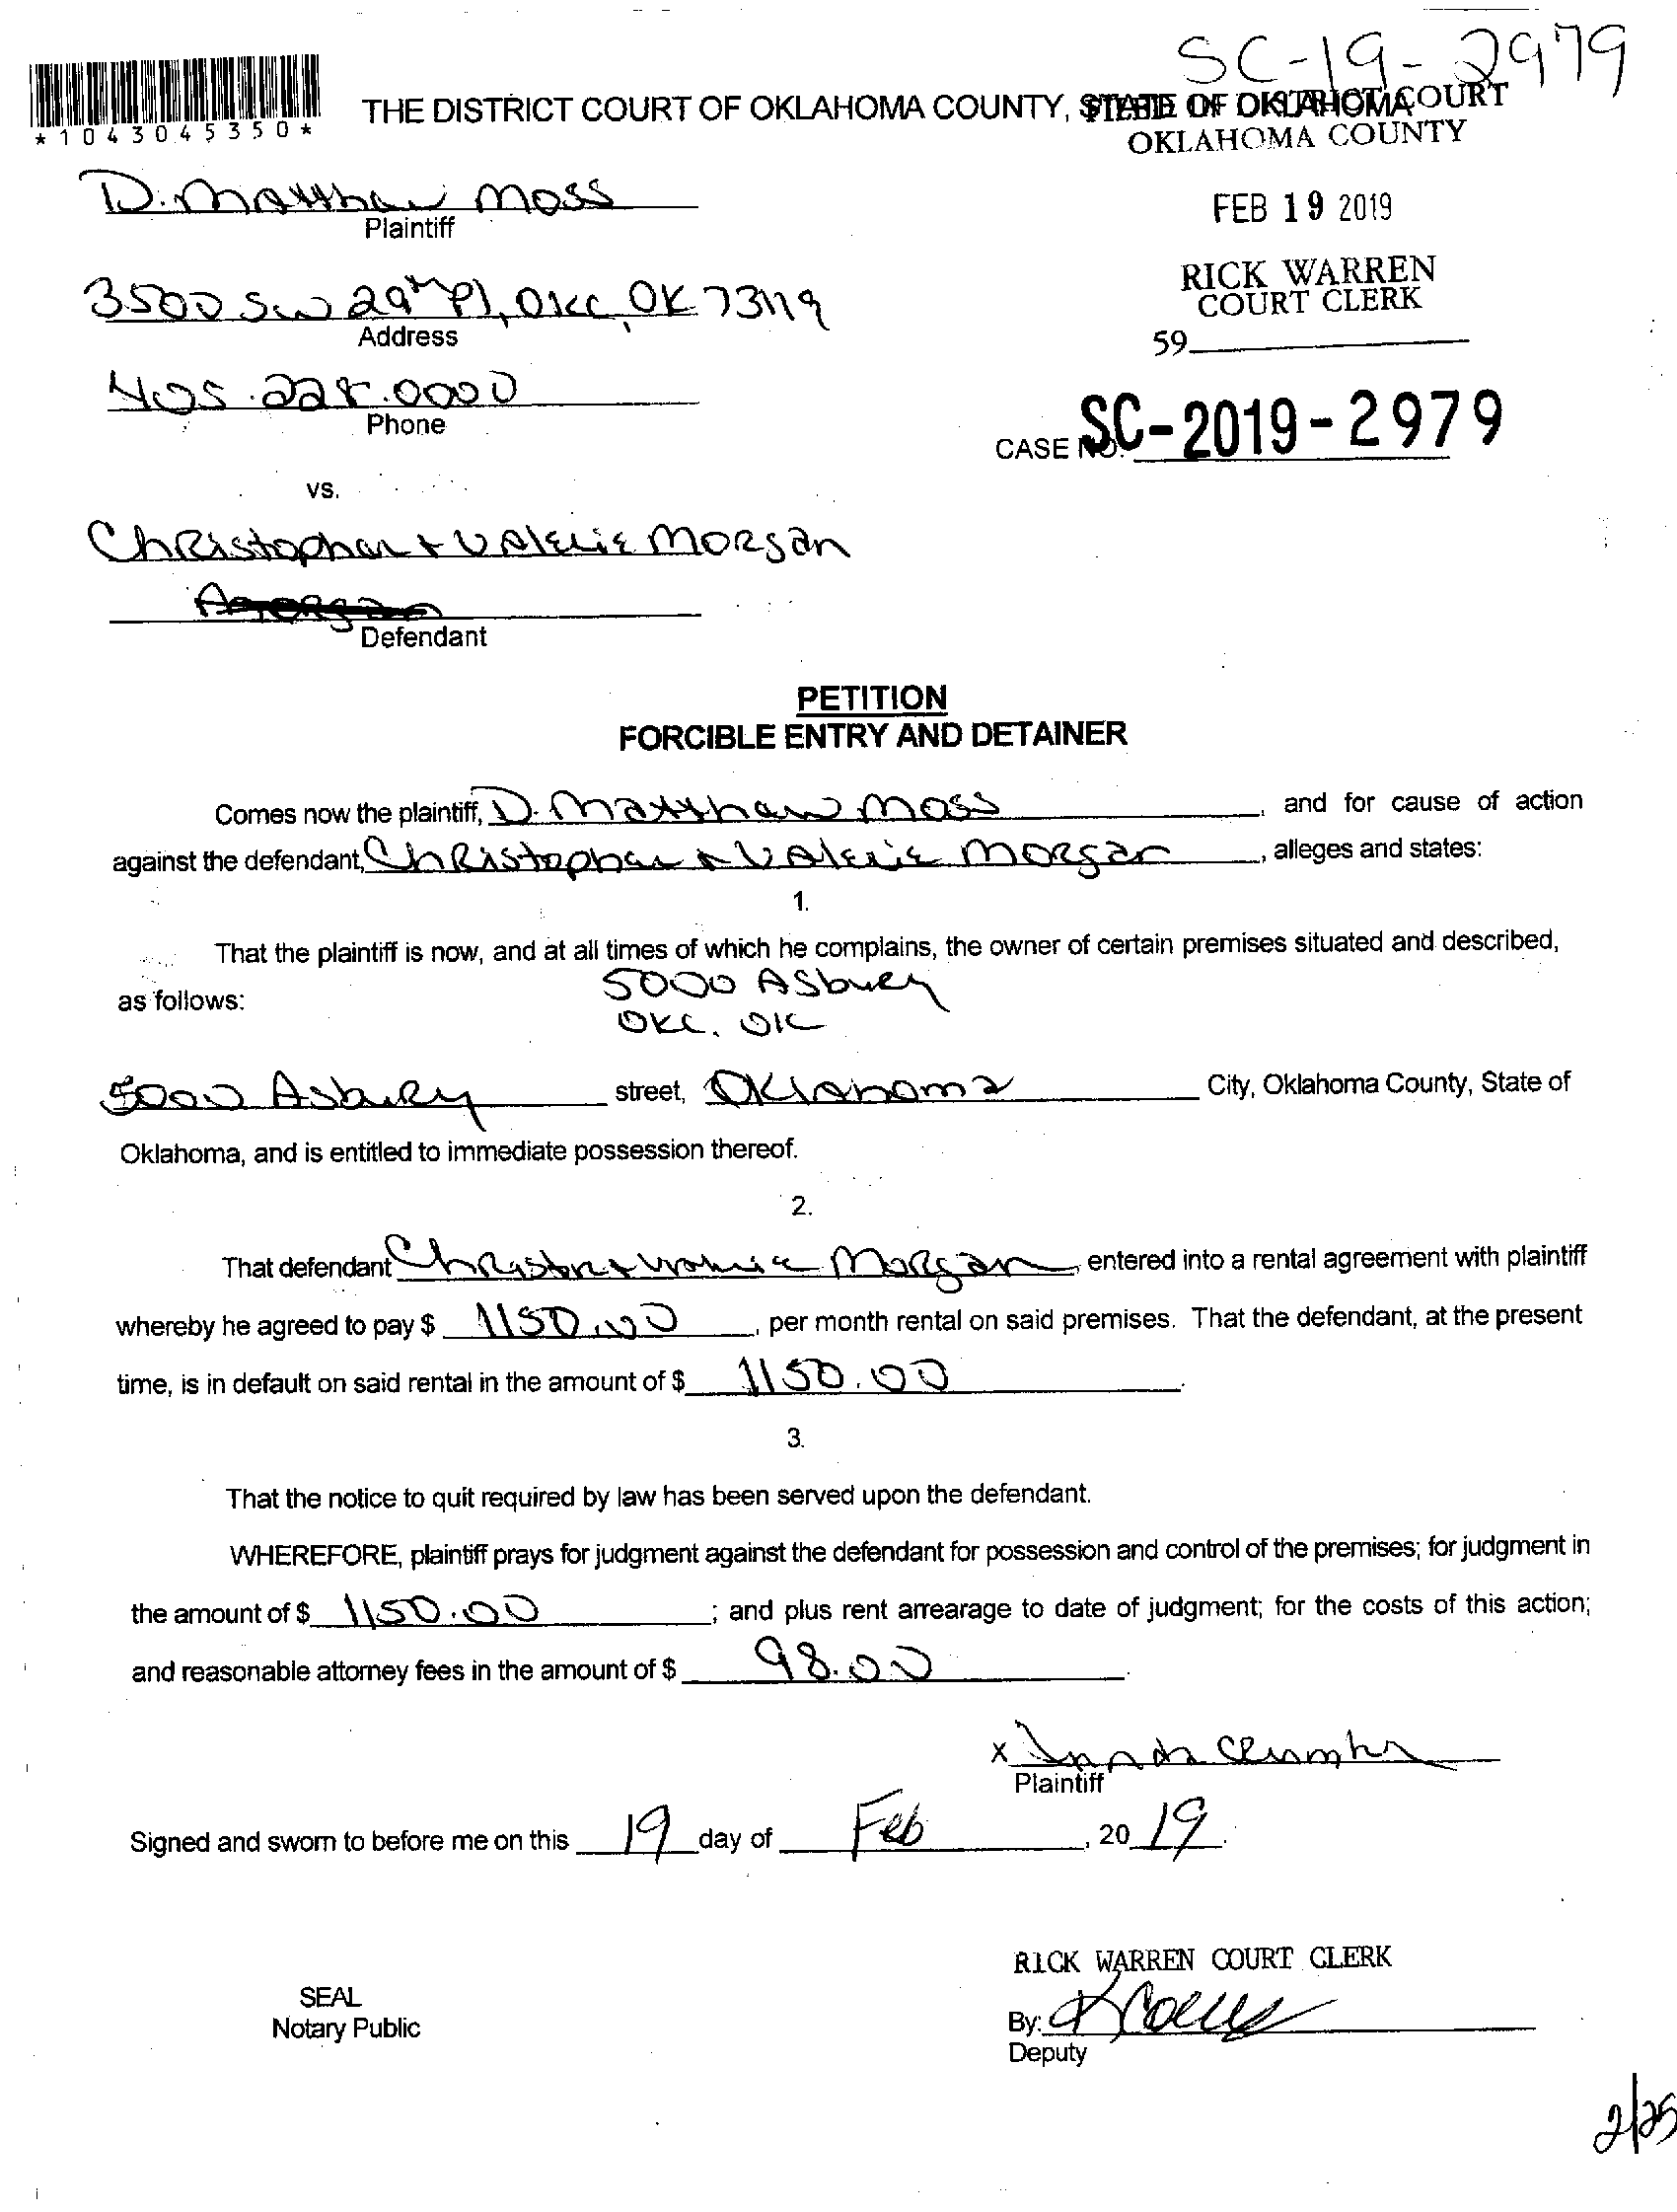 SC-19-2979
*1043045350*
THE DISTRICT COURT OF OKLAHOMA COUNTY, STATE OF OKLAHOMA
FILED IN DISTRICT COURT
OKLAHOMA COUNTY
D. Matthew Moss
Plaintiff
FEB 19 2019
3500 SW 29th Pl, OKC, OK 73119
Address
RICK WARREN
COURT CLERK
59
405.228.0000
Phone
CASE NO. SC-2019-2979
vs.
Christopher + Valerie Morgan
Defendant
PETITION
FORCIBLE ENTRY AND DETAINER
Comes now the plaintiff, D. Matthew Moss, and for cause of action
against the defendant, Christopher + Valerie Morgan, alleges and states:
1.
That the plaintiff is now, and at all times of which he complains, the owner of certain premises situated and described,
as follows: 5000 Asbury
OKC. OK
5000 Asbury street, Oklahoma City, Oklahoma County, State of
Oklahoma, and is entitled to immediate possession thereof.
2.
That defendant Morgan, entered into a rental agreement with plaintiff
whereby he agreed to pay $ 1150.00, per month rental on said premises. That the defendant, at the present
time, is in default on said rental in the amount of $ 1150.00.
3.
That the notice to quit required by law has been served upon the defendant.
WHEREFORE, plaintiff prays for judgment against the defendant for possession and control of the premises; for judgment in
the amount of $ 1150.00; and plus rent arrearage to date of judgment; for the costs of this action;
and reasonable attorney fees in the amount of $ 98.00.
X
Plaintiff
Signed and sworn to before me on this 19 day of Feb, 2019.
RICK WARREN COURT CLERK
SEAL
Notary Public
By:
Deputy
2/25